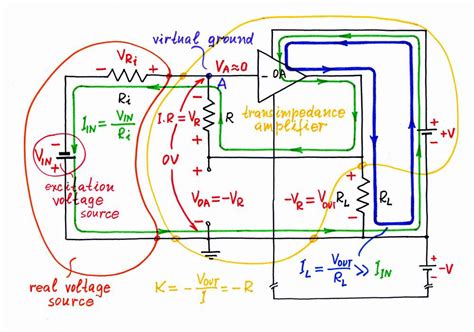 virtual ground
V_Ri
− +
V_A≈0
A
R_i
− OA
I_IN = V_IN / R_i
I.R = V_R
R
transimpedance
amplifier
+V
V_IN
0V
excitation
voltage
source
V_OA = −V_R
−V_R = V_OUT
R_L
real voltage
source
K = − V_OUT / I = −R
I_L = V_OUT / R_L ≫ I_IN
−V